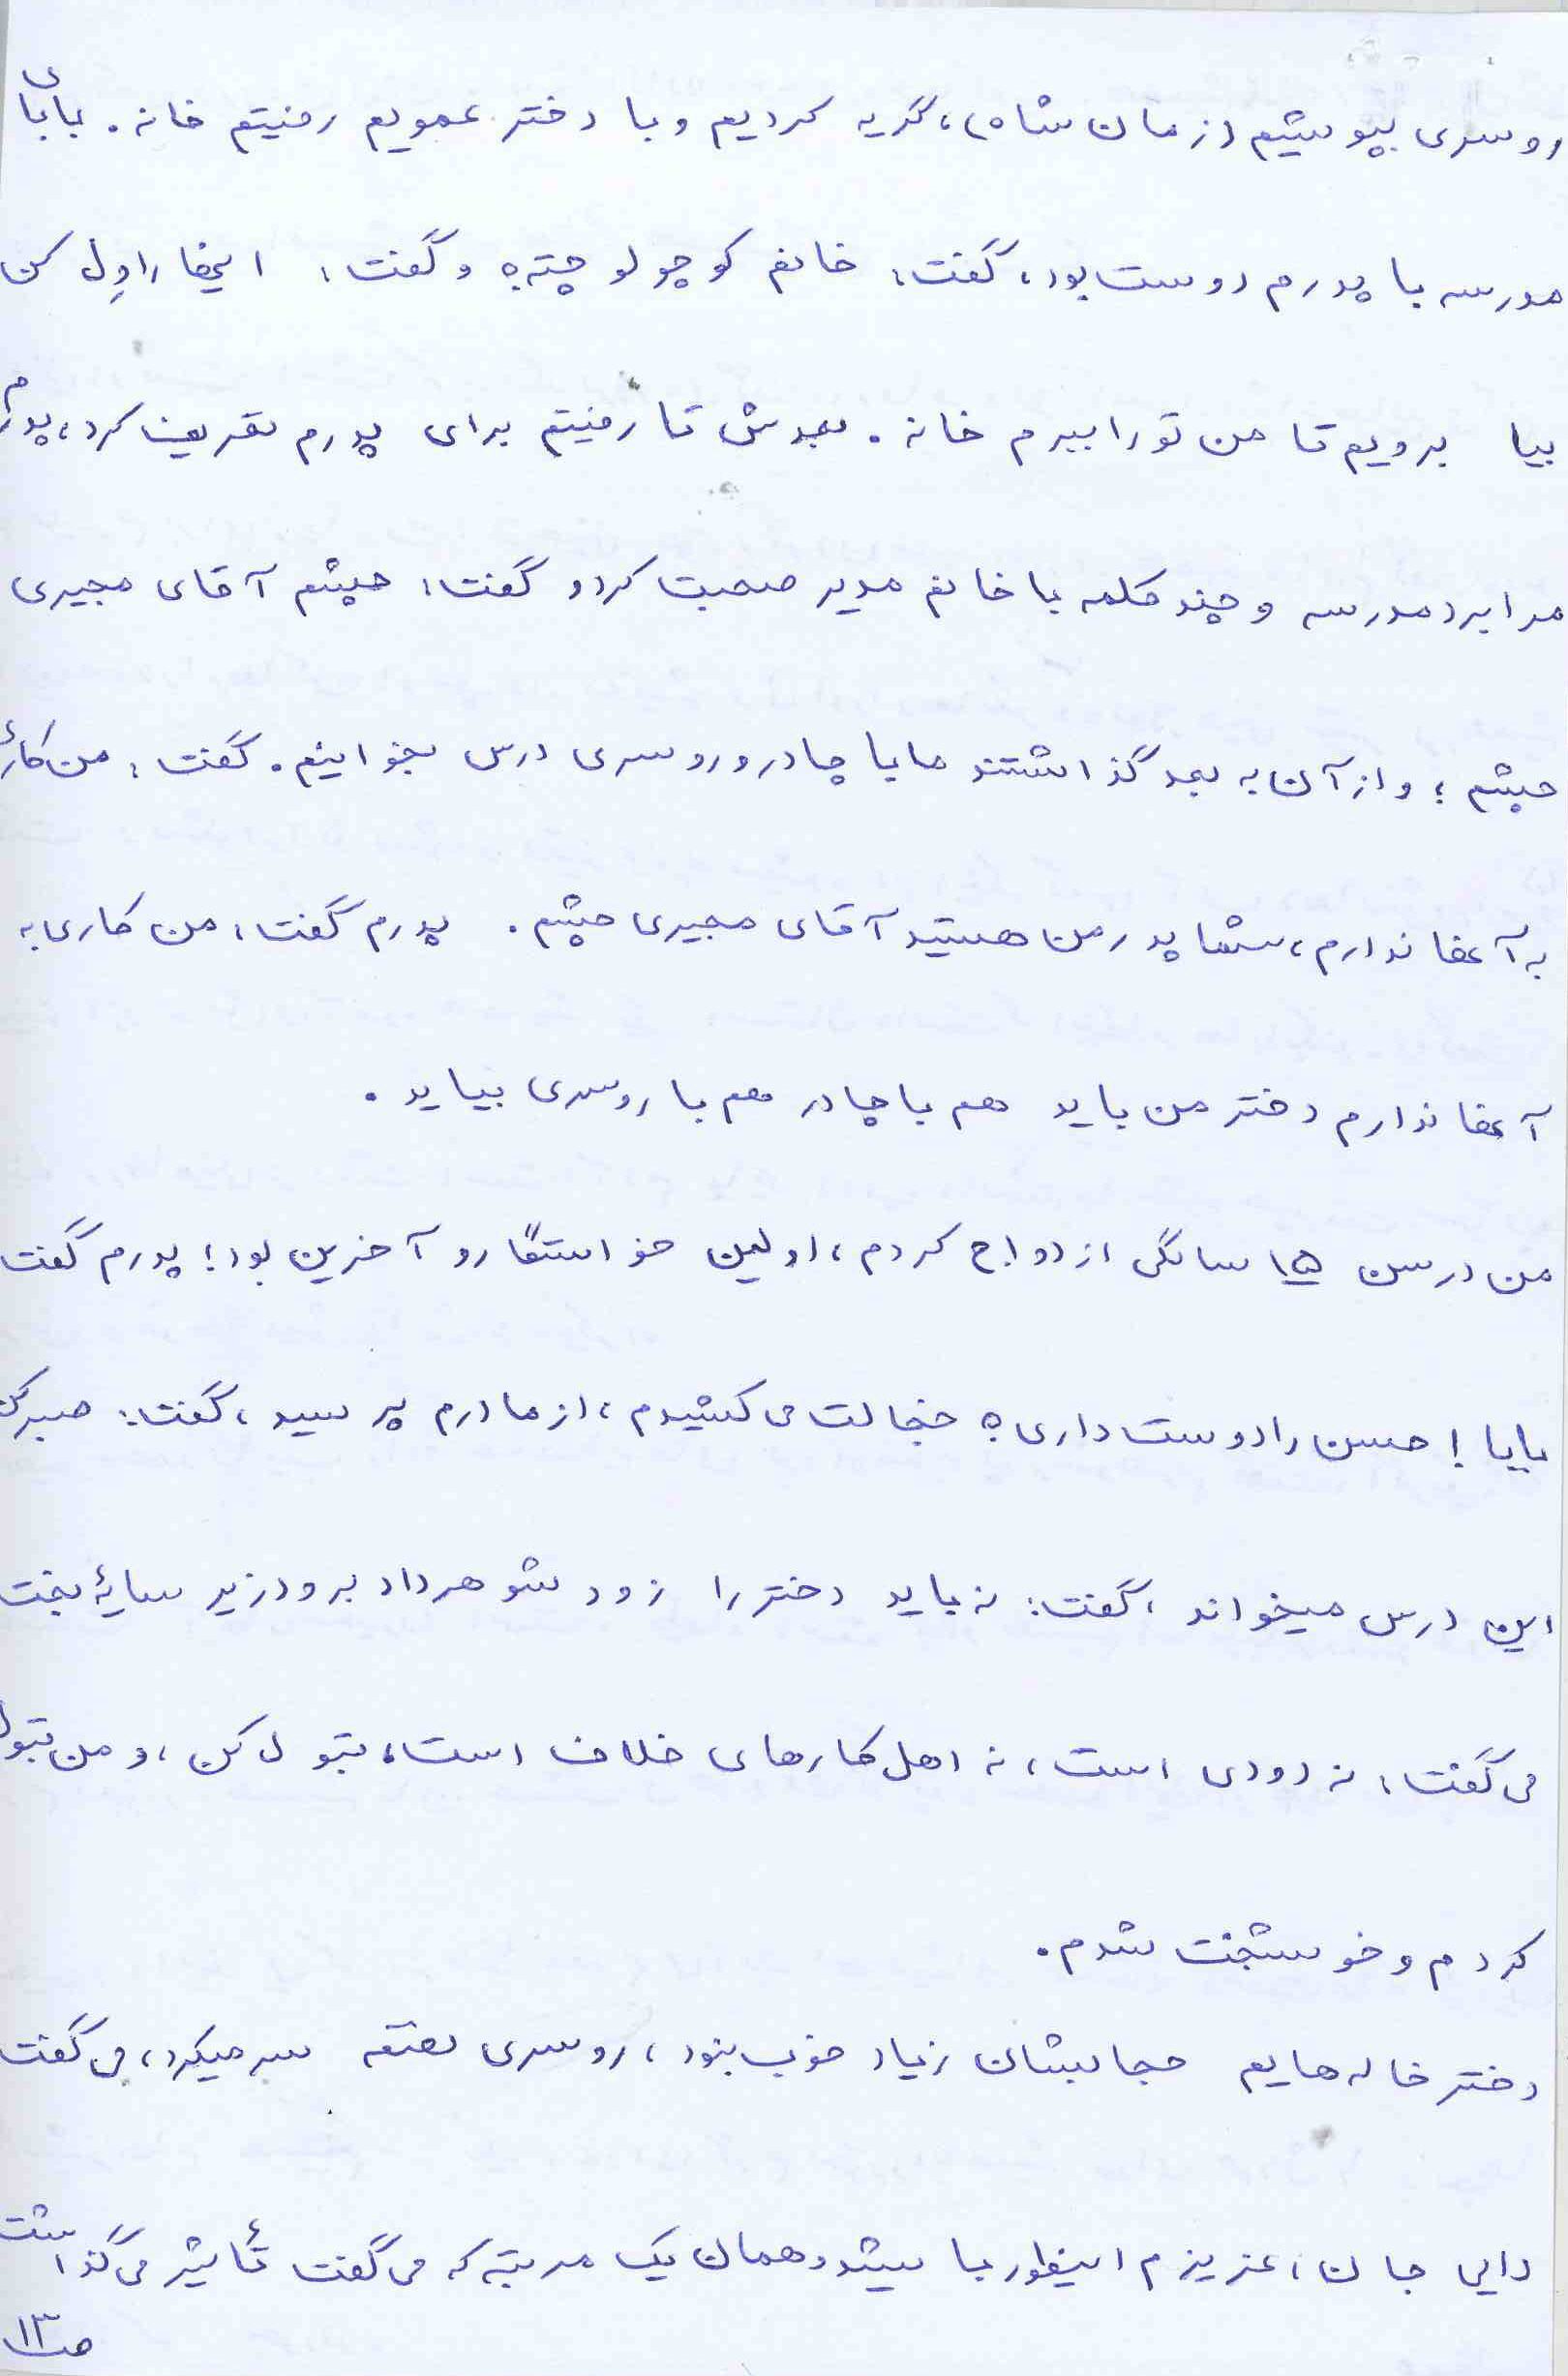 روسری بپوشیم (زمان شاه)، گریه کردیم و با دختر عمویم رفتیم خانه. بابای
مدرسه با پدرم دوست بود، گفت: خانم کوچولو چته؟ و گفت: اینها را وِل کن
بیا برویم تا من تو را ببرم خانه. بعدش تا رفتیم برای پدرم تعریف کرد، پدرم
مرا برد مدرسه و چند کلمه با خانم مدیر صحبت کرد و گفت: چشم آقای مجیری
چشم؛ و از آن به بعد گذاشتند ما با چادر و روسری درس بخوانیم. گفت: من کاری
به آنها ندارم، شما پدر من هستید آقای مجیری چشم. پدرم گفت: من کاری به
آنها ندارم دختر من باید هم با چادر هم با روسری بیاید.
من در سن ۱۵ سالگی ازدواج کردم، اولین خواستگار و آخرین بود؛ پدرم گفت
بابا! حسن را دوست داری؟ خجالت می کشیدم، از مادرم پرسید، گفت: صبر کن
این درس میخواند، گفت: نه باید دختر را زود شوهر داد برود زیر سایهٔ بخت
می گفت: نه دودی است، نه اهل کارهای خلاف است، قبول کن، و من قبول
کردم و خوشبخت شدم.
دختر خاله هایم حجابشان زیاد خوب نبود، روسری سر میکرد، می گفت
دایی جان، عزیزم اینطور با همان یک مرتبه که می گفت تأثیر می گذاشت
ص۱۳